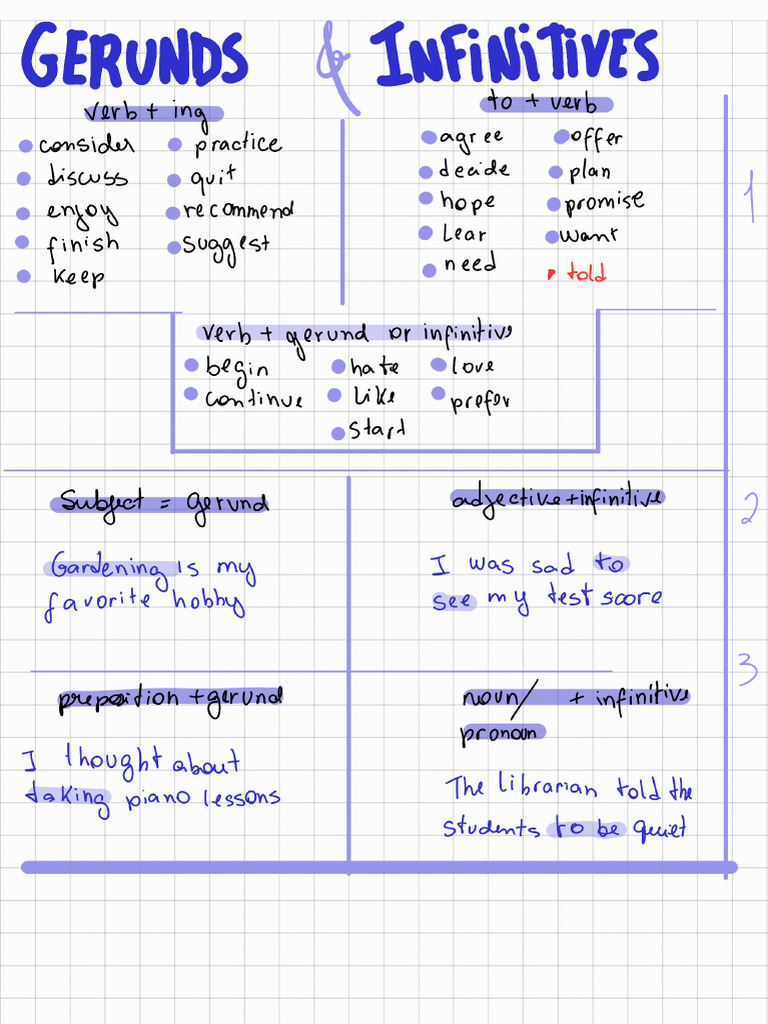 GERUNDS & INFINITIVES
verb + ing
consider
discuss
enjoy
finish
keep
practice
quit
recommend
suggest
to + verb
agree
decide
hope
Lear
need
offer
plan
promise
want
told
1
verb + gerund or infinitive
begin
continue
hate
like
start
love
prefer
Subject = gerund
Gardening is my
favorite hobby
adjective + infinitive
I was sad to
see my test score
2
preposition + gerund
I thought about
taking piano lessons
noun/ + infinitive
pronoun
The librarian told the
students to be quiet
3